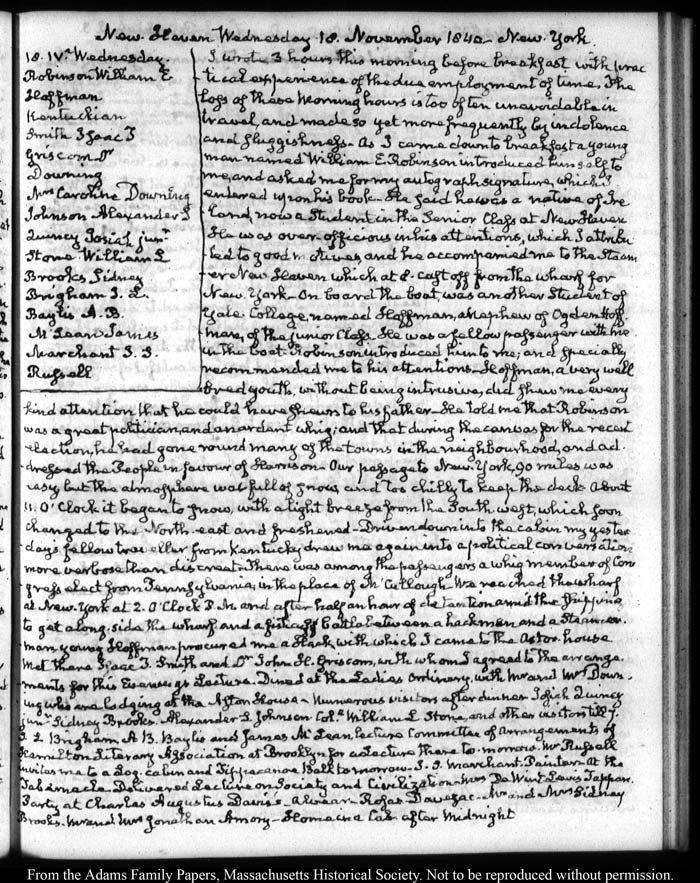 New-Haven Wednesday 18. November 1840 - New-York.
18. IV. Wednesday.
Robinson William E
Hoffman
Kentuckian
Smith Isaac T
Griscom Dr
Downing
Mrs Caroline Downing
Johnson Alexander S
Quincy Josiah junr
Stone William L
Brooks Sidney
Brigham J. L.
Baylis A. B.
McLean James
Marchant S. S.
Russell
I wrote 3 hours this morning before breakfast with prac
tical experience of the due employment of time. The
loss of these Morning hours is too often unavoidable in
travel, and made so yet more frequently by indolence
and sluggishness. As I came down to breakfast a young
man named William E. Robinson introduced himself to
me, and asked me for my autograph signature, which I
entered upon his book. He said he was a native of Ire
land, now a Student in the Senior Class at New Haven
He was over officious in his attentions, which I attribu
ted to good motives, and he accompanied me to the Steam
er New Haven which at 8. cast off from the wharf for
New-York - On board the boat was another Student of
Yale College, named Hoffman, a Nephew of Ogden Hoff
man, of the junior Class. He was a fellow passenger with me
in the boat. Robinson introduced him to me, and specially
recommended me to his attentions. Hoffman, a very well
bred youth, without being intrusive, did shew me every
kind attention that he could have shewn to his father. He told me that Robinson
was a great politician, and an ardent whig; and that during the canvas for the recent
election, he had gone round many of the towns in the neighbourhood, and ad
dressed the People in favour of Harrison - Our passage to New-York, 90 miles was
easy but the atmosphere was full of snow, and too chilly to keep the deck. About
11. O'Clock it began to snow, with a light breeze from the South west, which soon
changed to the North-east and freshened - Driven down into the cabin my yester
day's fellow traveller from Kentucky drew me again into a political conversation
more verbose than discreet. There was among the passengers a whig member of Con
gress elect from Pennsylvania, in the place of McCullough. We reached the wharf
at New-York at 2. O'Clock P.M. and after half an hour of detention amid the shipping
to get along-side the wharf and a fisticuff battle between a hackman and a Steamer-
man young Hoffman procured me a Hack, with which I came to the Astor-house
Met there Isaac T. Smith and Dr John H. Griscom, with whom I agreed to the arrange
ments for this Evening's Lecture. Dined at the Ladies Ordinary, with Mr and Mrs Down
ing who are lodging at the Astor House - Numerous visitors after dinner Josiah Quincy
junr Sidney Brooks. Alexander S Johnson Coll. William L Stone, and other visitors till 7.
J. L Brigham, A B. Baylis and James McLean, lecture Committee of Arrangements of
Hamilton Literary Association at Brooklyn for a Lecture there to-morrow. Mr Russell
invites me to a Log-cabin and Tippecanoe Ball to morrow. S. S. Marchant. Painter - At the
Tabernacle Delivered Lecture on Society and Civilization - Mrs De Wint Lewis Tappan.
Party at Charles Augustus Davis's - Alvear - Davezac - Mr and Mrs Sidney
Brooks. Mr and Mrs Jonathan Amory - Home in a Cab after Midnight
From the Adams Family Papers, Massachusetts Historical Society. Not to be reproduced without permission.